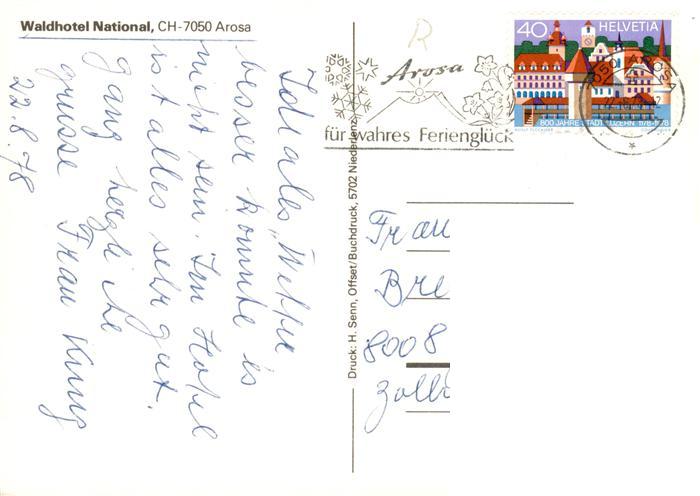 Waldhotel National, CH-7050 Arosa
Ideales Wetter
besser könnte es
nicht sein. Im Hotel
ist alles sehr gut.
ganz herzliche
grüsse Frau
22.8.78
Druck: H. Senn, Offset/Buchdruck, 5702 Niederlenz
Arosa
für wahres Ferienglück
40 HELVETIA
800 JAHRE STADT LUZERN 1178-1978
7050 AROSA
Frau
Bre
8008
Zoll